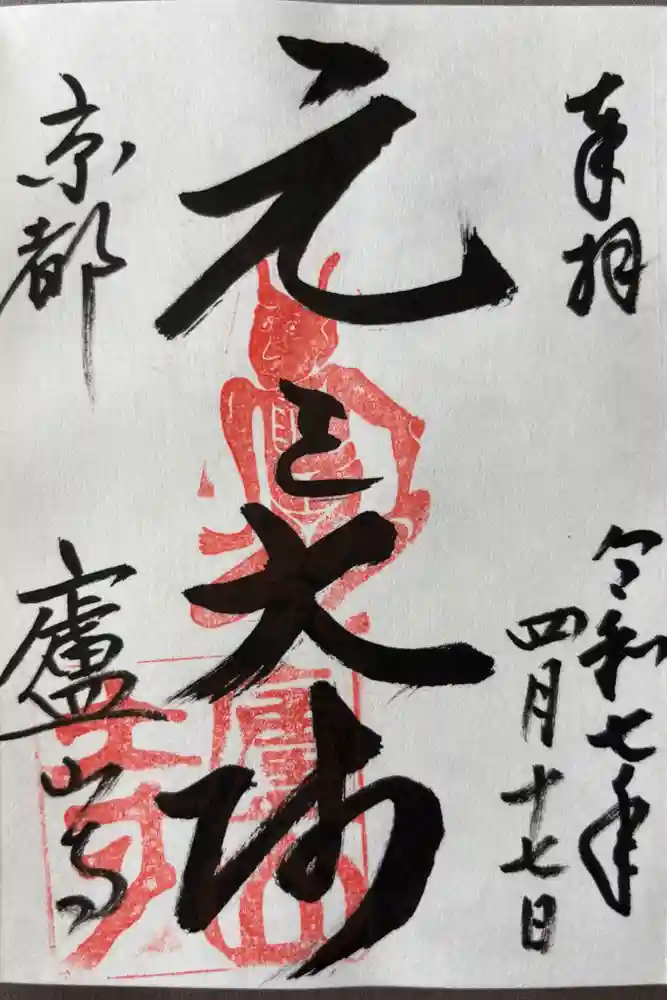 奉拝
令和七年
四月十七日
元三大师
京都
廬山寺